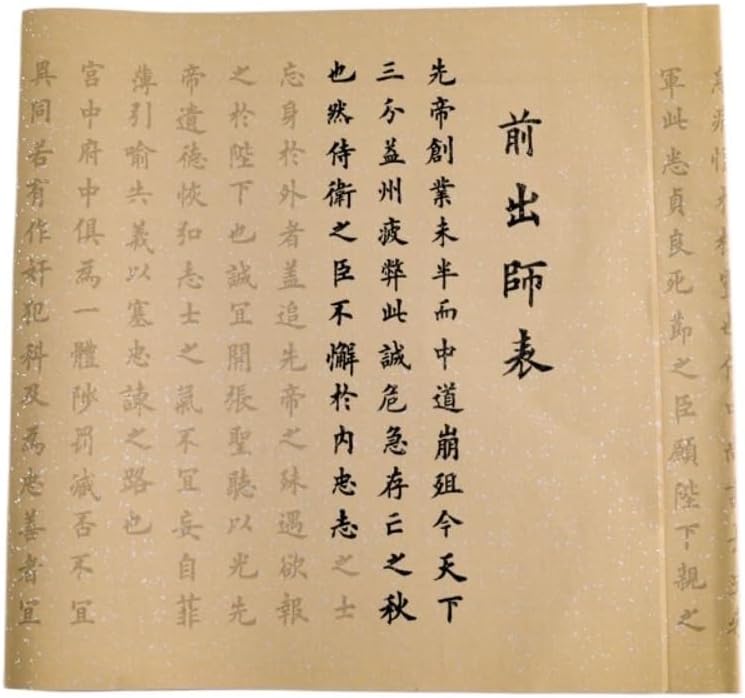 前出師表
先帝創業未半而中道崩殂今天下
三分益州疲弊此誠危急存亡之秋
也然侍衛之臣不懈於内忠志之士
忘身於外者盖追先帝之殊遇欲報
之於陛下也誠冝開張聖聽以光先
帝遺德恢弘志士之氣不冝妄自菲
薄引喻失義以塞忠諫之路也
宮中府中俱為一體陟罰臧否不冝
異同若有作奸犯科及為忠善者冝
軍此悉貞良死節之臣願陛下親之